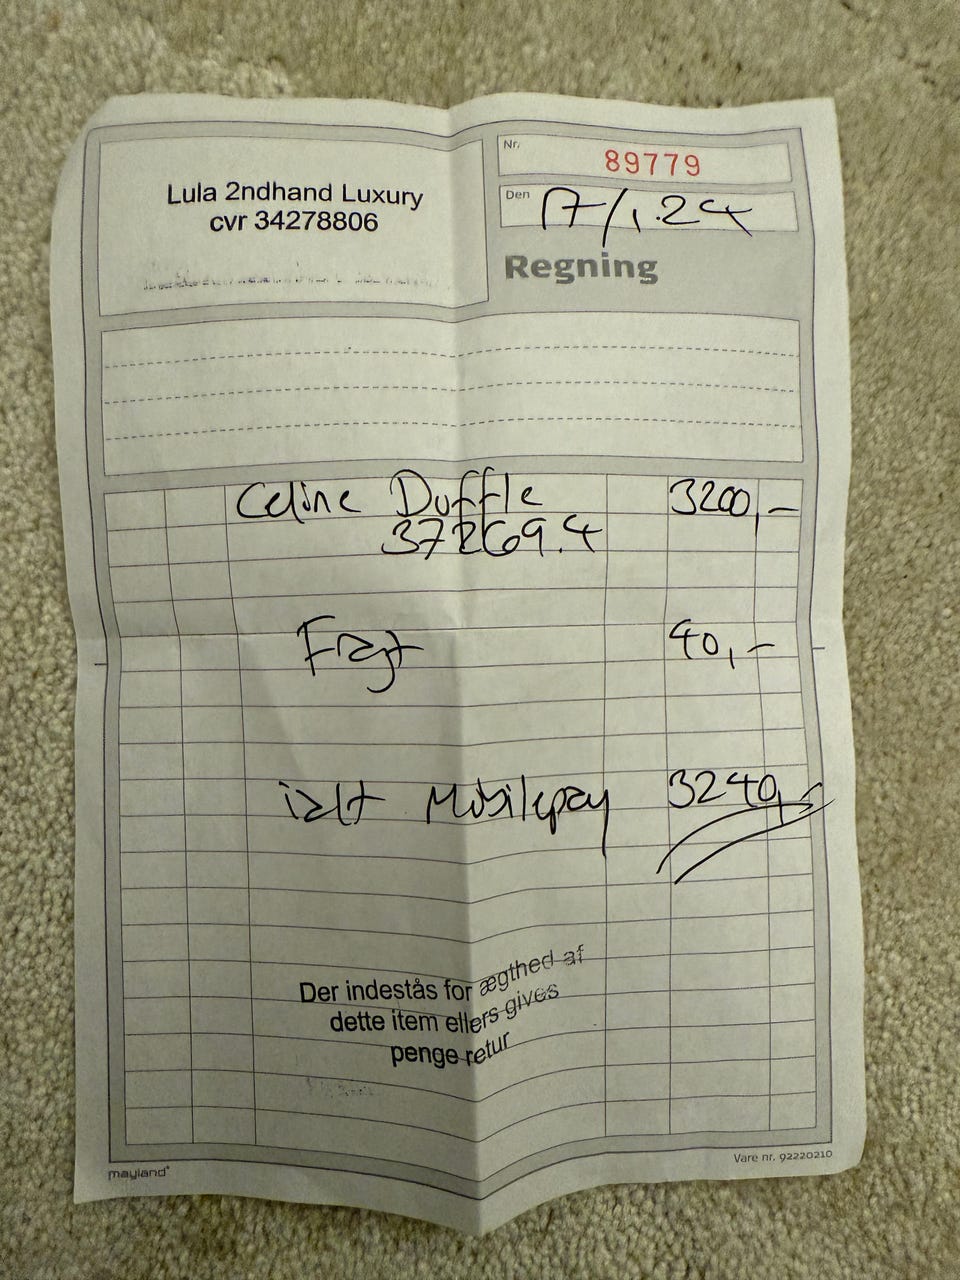 Lula 2ndhand Luxury
cvr 34278806
Nr.
89779
Den
17/1.24
Regning
Celine Duffle 3200,-
37269.4
Fragt 40,-
ialt Mobilepay 3240,-
Der indestås for ægthed af
dette item ellers gives
penge retur
mayland
Vare nr. 92220210